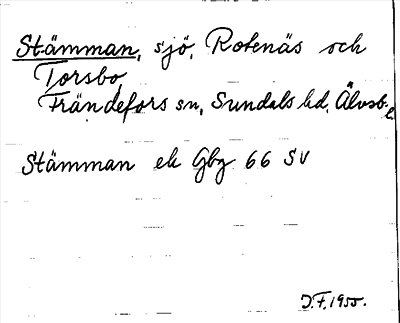 Stämman, sjö, Rotenäs och
Torsbo,
Frändefors sn, Sundals hd, Älvsb. l.
Stämman ek Gbg 66 SV
J.F. 1955.